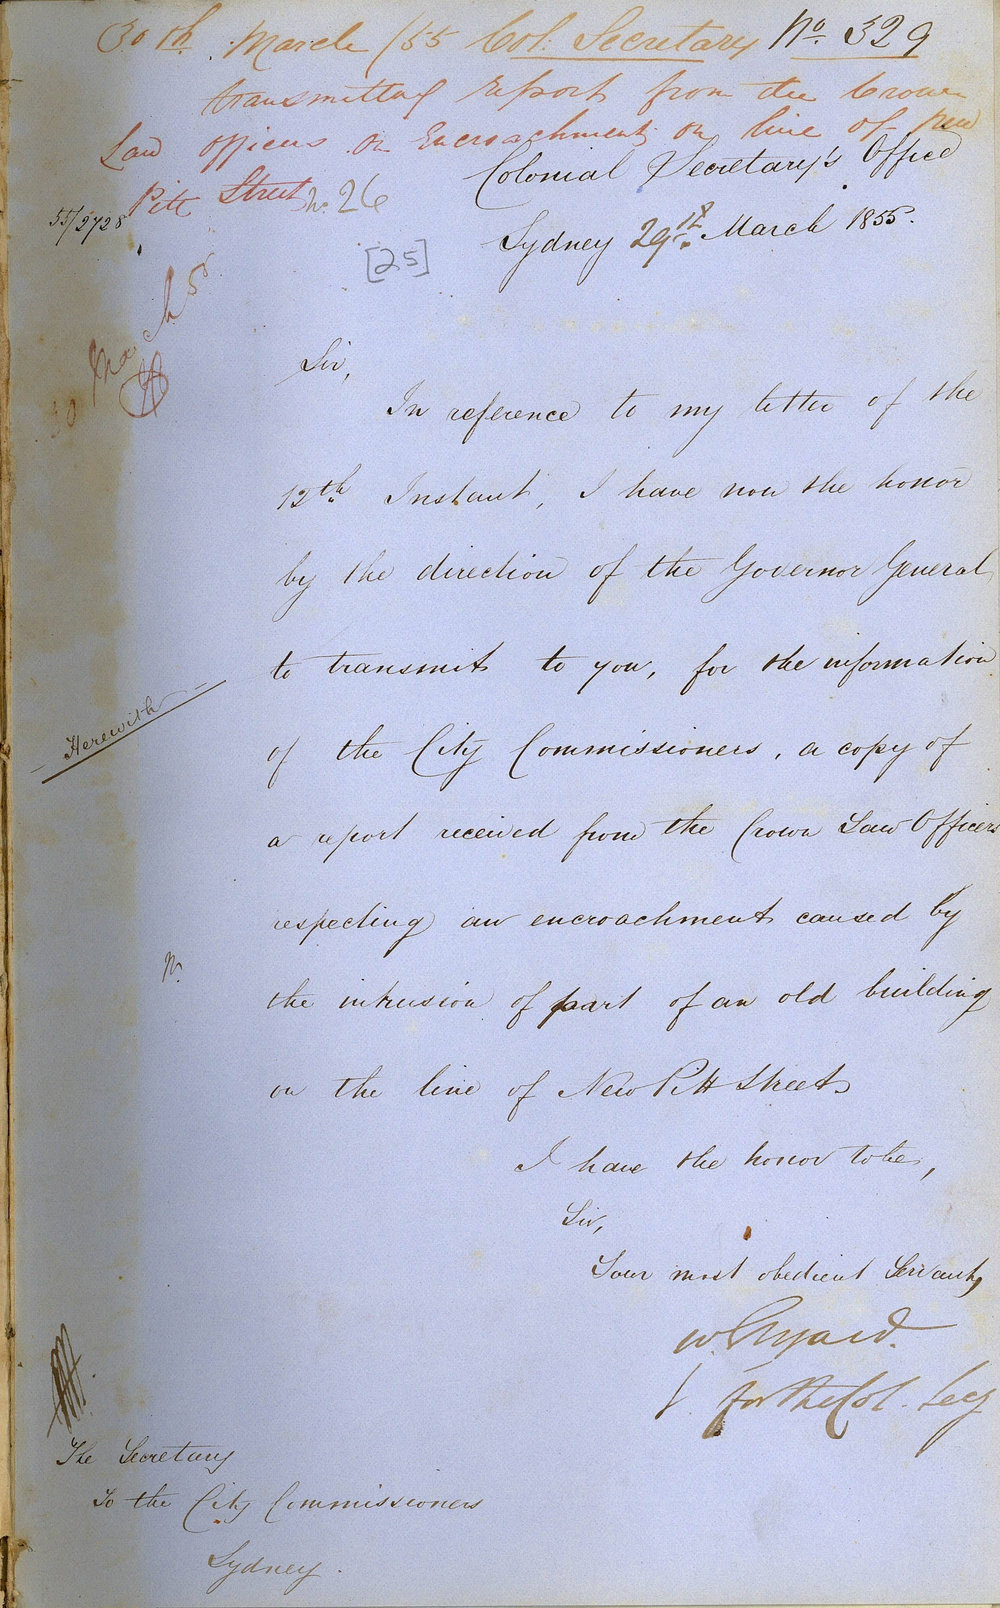 30th March /55 Col: Secretary No. 329
transmitting report from the Crown
Law officers on Encroachment on line of new
Pitt Street
No. 26
55/2728
[25]
Colonial Secretary's Office
Sydney 29th March 1855.
30 March 55
Sir,
In reference to my letter of the
12th Instant, I have now the honor
by the direction of the Governor General
to transmit to you, for the information
Herewith
of the City Commissioners, a copy of
a report received from the Crown Law Officers
respecting an encroachment caused by
the intrusion of part of an old building
on the line of New Pitt Street
I have the honor to be,
Sir,
Your most obedient Servant,
W. Elyard.
for the Col. Secy
The Secretary
To the City Commissioners
Sydney.